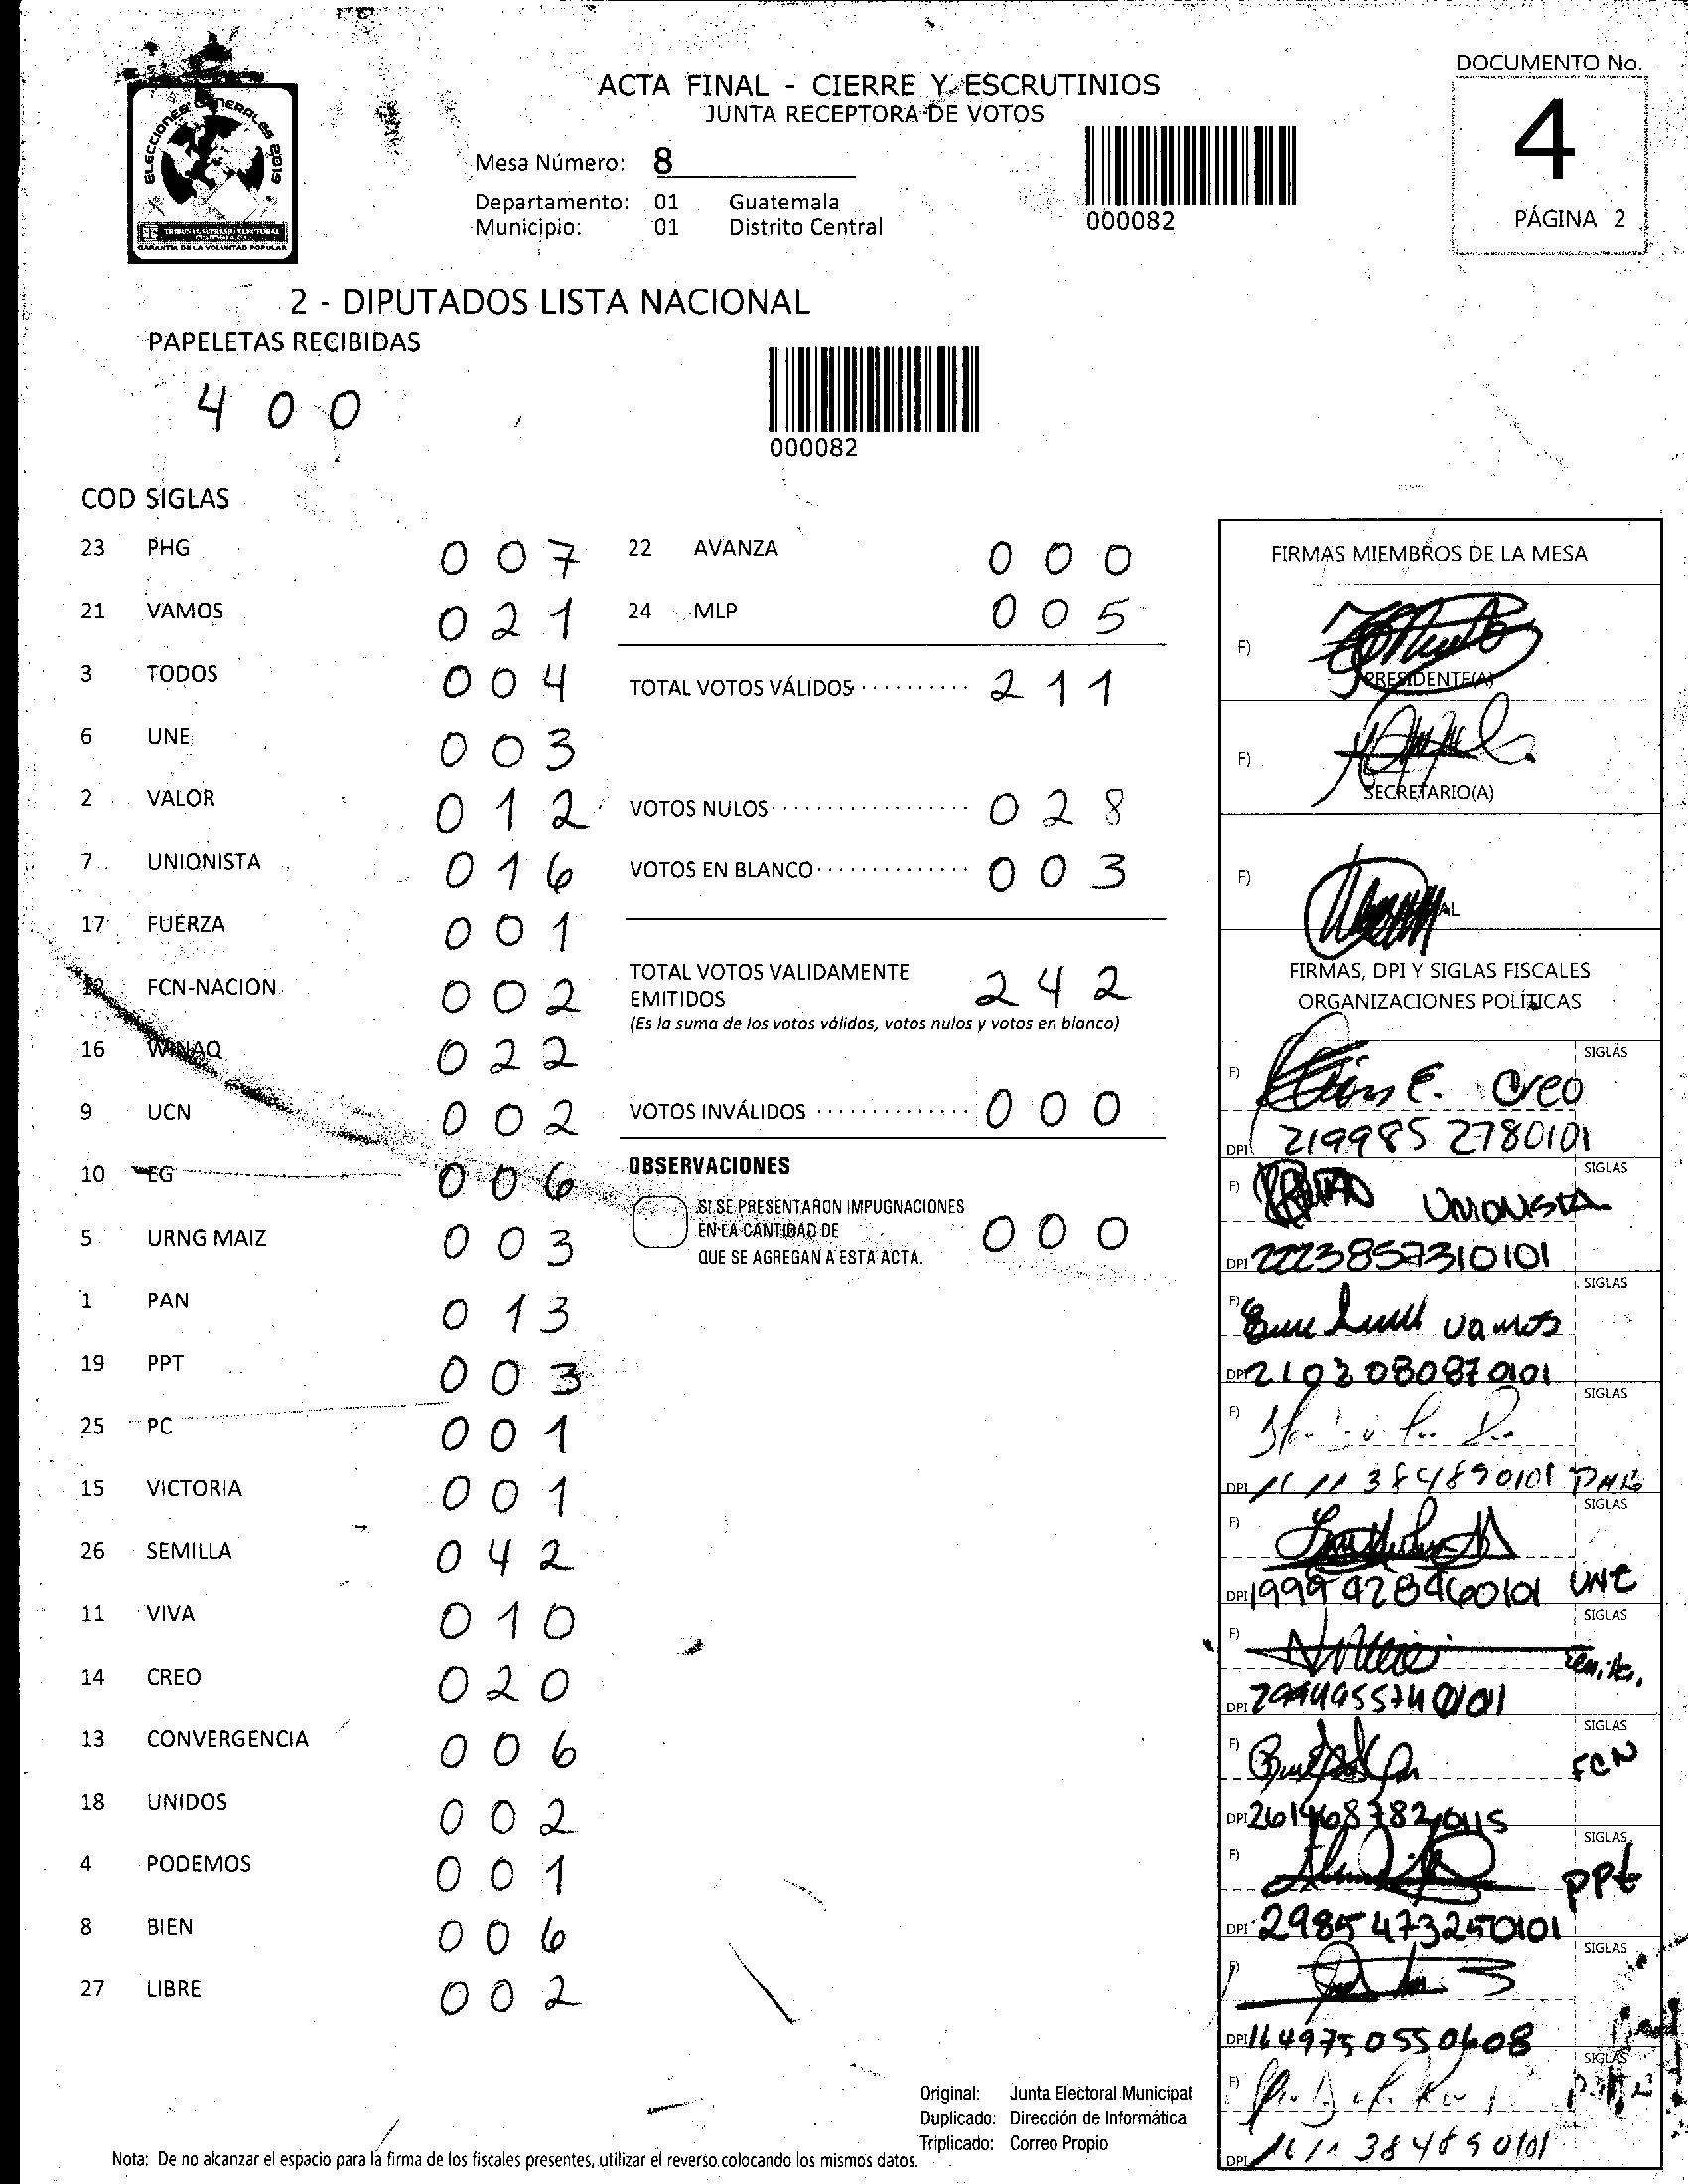 ELECCIONES GENERALES 2019
GARANTIA DE LA VOLUNTAD POPULAR
ACTA FINAL - CIERRE Y ESCRUTINIOS
JUNTA RECEPTORA DE VOTOS
Mesa Número: 8
Departamento: 01 Guatemala
Municipio: 01 Distrito Central
000082
DOCUMENTO No.
4
PÁGINA 2
2 - DIPUTADOS LISTA NACIONAL
PAPELETAS RECIBIDAS
4 0 0
000082
COD SIGLAS
23 PHG 0 0 7
21 VAMOS 0 2 1
3 TODOS 0 0 4
6 UNE 0 0 3
2 VALOR 0 1 2
7 UNIONISTA 0 1 6
17 FUERZA 0 0 1
12 FCN-NACION 0 0 2
16 WINAQ 0 2 2
9 UCN 0 0 2
10 EG 0 0 6
5 URNG MAIZ 0 0 3
1 PAN 0 1 3
19 PPT 0 0 3
25 PC 0 0 1
15 VICTORIA 0 0 1
26 SEMILLA 0 4 2
11 VIVA 0 1 0
14 CREO 0 2 0
13 CONVERGENCIA 0 0 6
18 UNIDOS 0 0 2
4 PODEMOS 0 0 1
8 BIEN 0 0 6
27 LIBRE 0 0 2
22 AVANZA 0 0 0
24 MLP 0 0 5
TOTAL VOTOS VÁLIDOS 2 1 1
VOTOS NULOS 0 2 8
VOTOS EN BLANCO 0 0 3
TOTAL VOTOS VALIDAMENTE
EMITIDOS 2 4 2
(Es la suma de los votos válidos, votos nulos y votos en blanco)
VOTOS INVÁLIDOS 0 0 0
OBSERVACIONES
SI SE PRESENTARON IMPUGNACIONES
EN LA CANTIDAD DE 0 0 0
QUE SE AGREGAN A ESTA ACTA.
FIRMAS MIEMBROS DE LA MESA
F)
PRESIDENTE(A)
F)
SECRETARIO(A)
F)
FIRMAS, DPI Y SIGLAS FISCALES
ORGANIZACIONES POLÍTICAS
F) SIGLAS
Creo
DPI 219985 2780101
F) SIGLAS
UNIONISTA
DPI 2223857310101
F) SIGLAS
Vamos
DPI 2103080870101
F) SIGLAS
DPI
F) SIGLAS
DPI 1999928460101 UNE
F) SIGLAS
DPI
F) SIGLAS
FCN
DPI 2614687820115
F) SIGLAS
PPt
DPI 2985473250101
F) SIGLAS
DPI 1649750550608
F) SIGLAS
DPI
Original: Junta Electoral Municipal
Duplicado: Dirección de Informática
Triplicado: Correo Propio
Nota: De no alcanzar el espacio para la firma de los fiscales presentes, utilizar el reverso colocando los mismos datos.